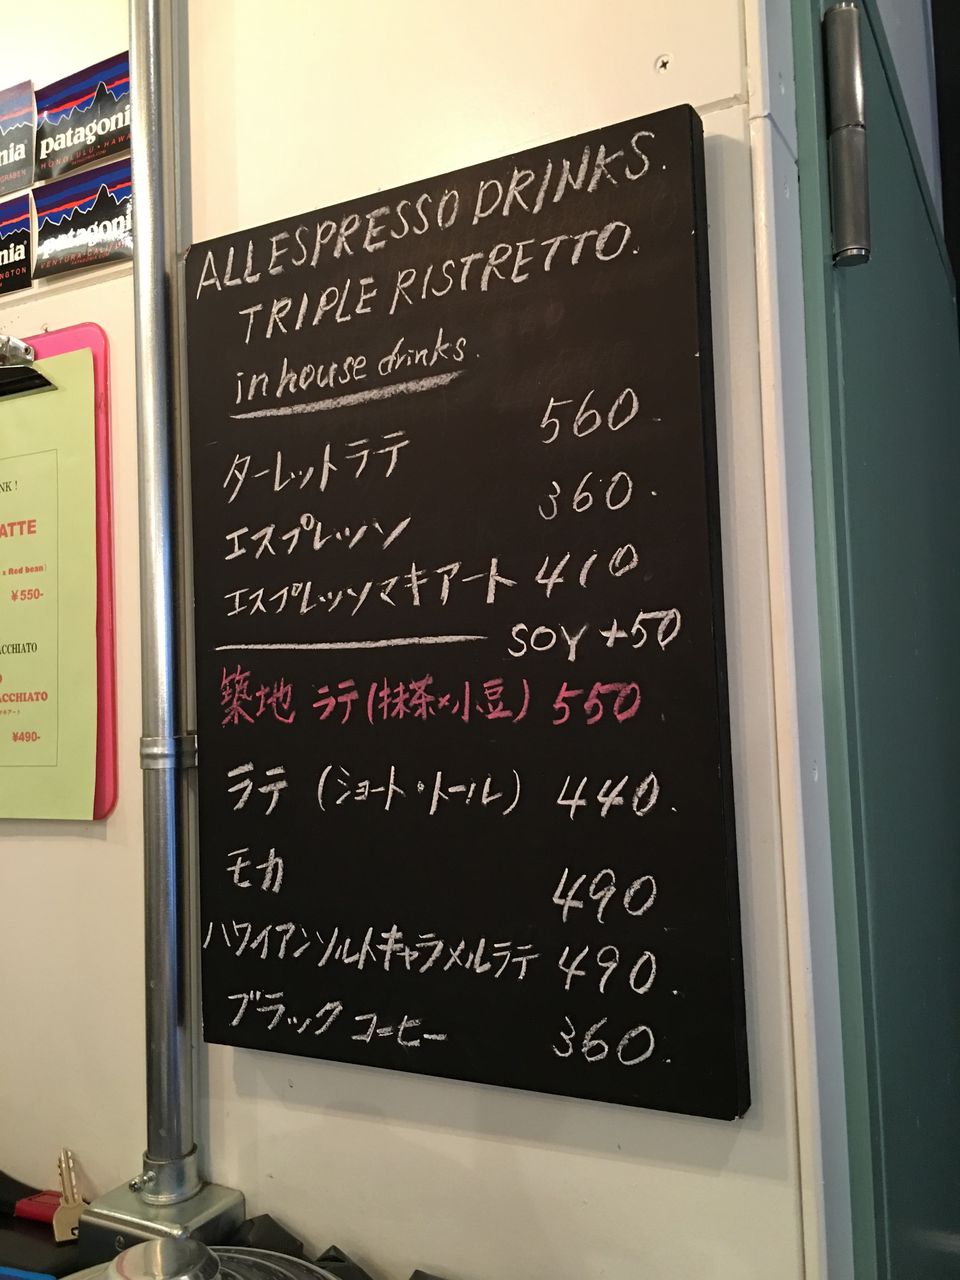 patagonia
HONOLULU • HAWA
nia
GRABEN
patagoni
VENTURA • CALIF
nia
NGTON
NK !
ATTE
x Red bean)
¥550-
ACCHIATO
ACCHIATO
¥490-
ALL ESPRESSO DRINKS.
TRIPLE RISTRETTO.
in house drinks.
ターレットラテ 560.
エスプレッソ 360.
エスプレッソマキアート 410
SOY +50
築地 ラテ(抹茶×小豆) 550
ラテ (ショート・トール) 440.
モカ 490
ハワイアンソルトキャラメルラテ 490.
ブラックコーヒー 360.